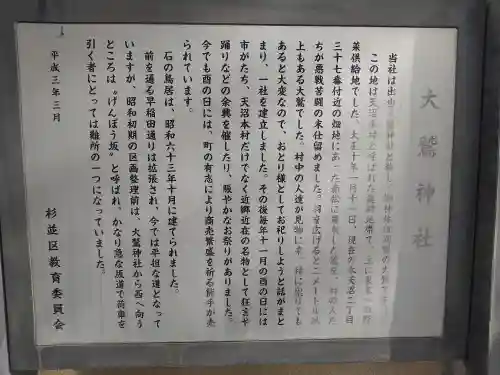 大鷲神社
当社は出
この地は天沼本村と呼ばれた農耕地帯で、
菜供給地でした。大正十年一月十一日、現在の本天沼二丁目
三十七番付近の畑地にあった赤松に
ちが悪戦苦闘の末仕留めました。羽を広げると二メートル以
上もある大鷲でした。村中の人達が見物に来
あると大変なので、おとり様としてお祀りしようと話がまと
まり、一社を建立しました。その後毎年十一月の酉の日には
市がたち、天沼本村だけでなく近郷近在の名物として狂言や
踊りなどの余興を催したり、賑やかなお祭りがありました。
今でも酉の日には、町の有志により商売繁盛を祈る熊手が売
られています。
石の鳥居は、昭和六十三年十月に建てられました。
前を通る早稲田通りは拡張され、今では平坦な道となって
いますが、昭和初期の区画整理前は、大鷲神社から西へ向う
ところは〝げんぼう坂〟と呼ばれ、かなり急な坂道で荷車を
引く者にとっては難所の一つになっていました。
平成三年三月
杉並区教育委員会